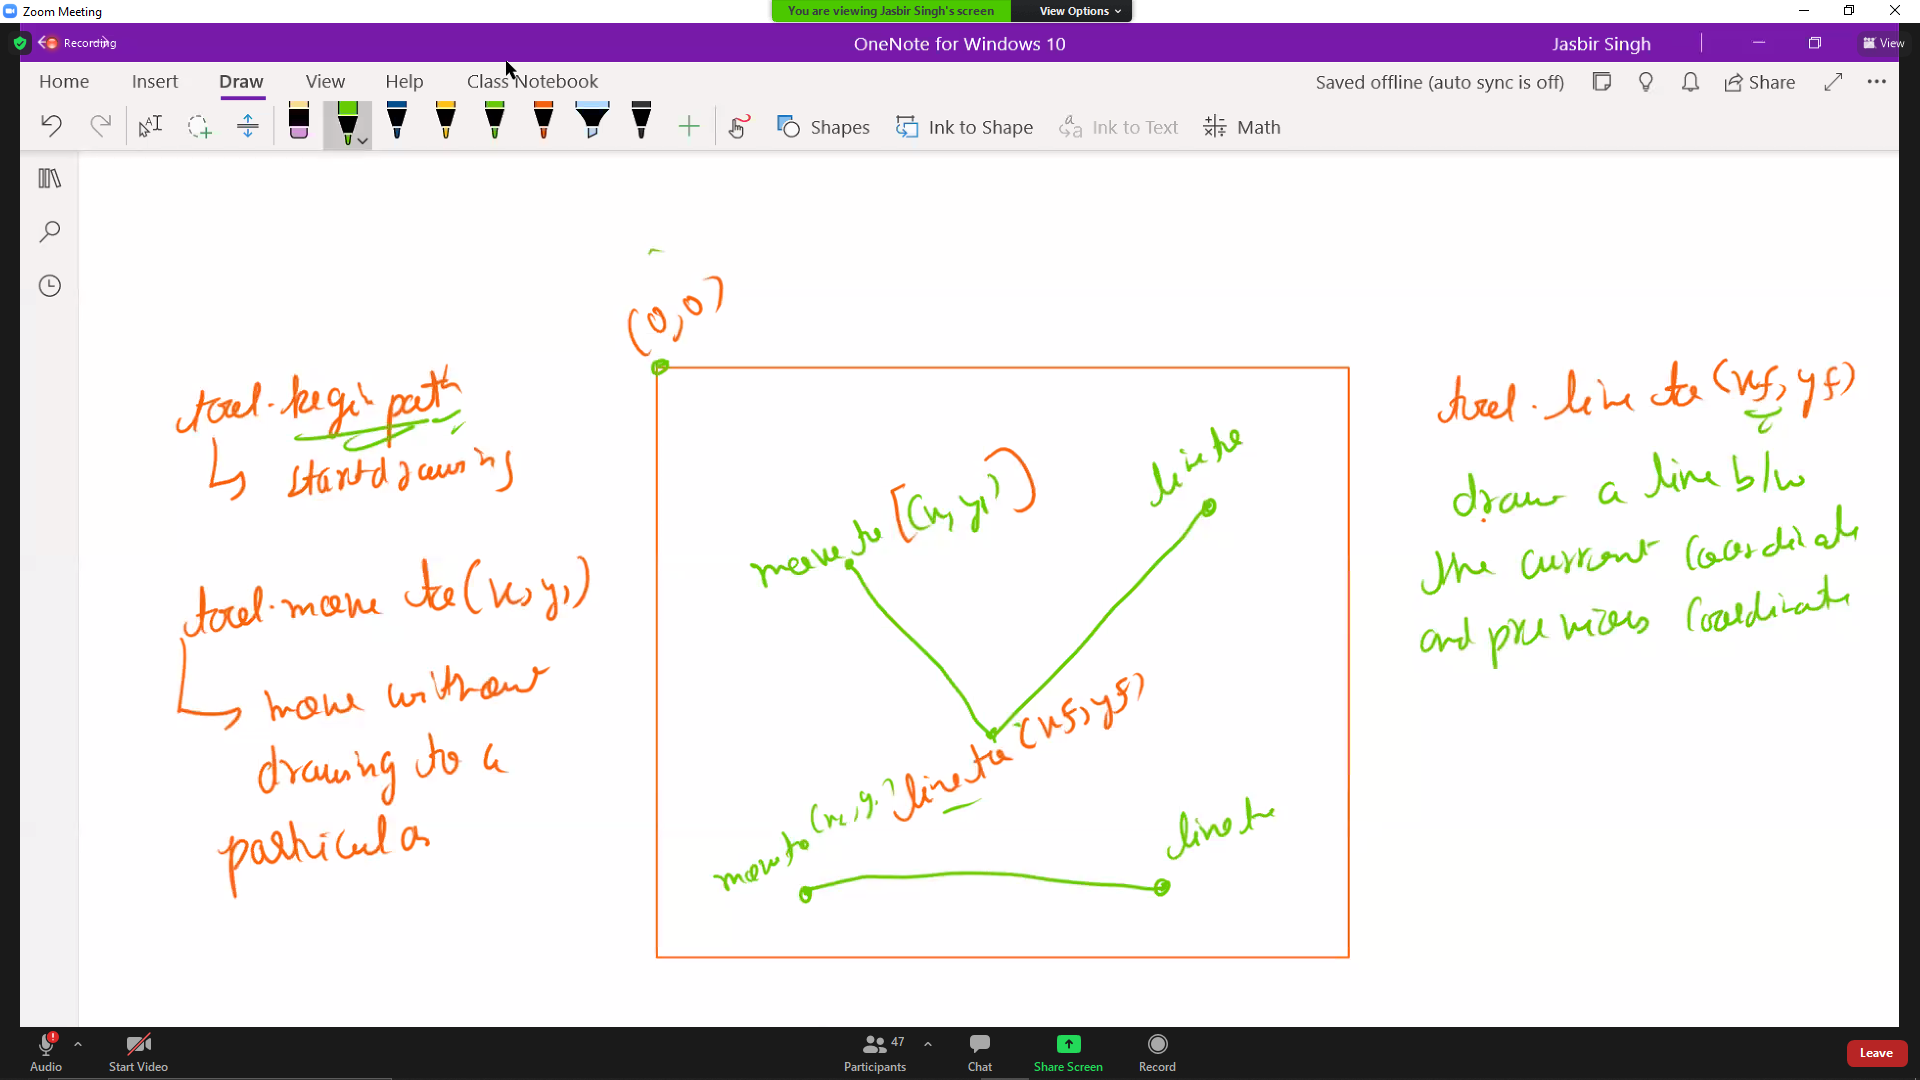 Zoom Meeting
You are viewing Jasbir Singh's screen
View Options
Recording
OneNote for Windows 10
Jasbir Singh
View
Home Insert Draw View Help Class Notebook
Saved offline (auto sync is off)
Share
Shapes
Ink to Shape
Ink to Text
Math
(0,0)
tool.begin path
start drawing
tool.move to (x1, y1)
move without
drawing to a
particular
move to [(x1, y1)]
line to
line to (xf, yf)
move to (x1, y1)
line to
tool.line to (xf, yf)
draw a line b/w
the current coordinate
and previous coordinate
Audio
Start Video
47
Participants
Chat
Share Screen
Record
Leave